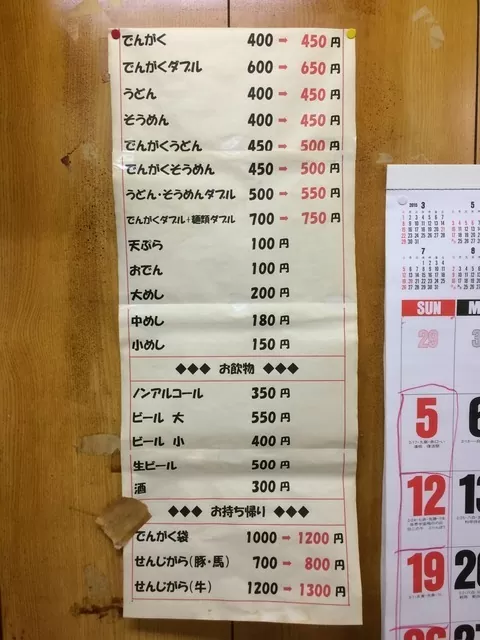 でんがく 400 → 450 円
でんがくダブル 600 → 650 円
うどん 400 → 450 円
そうめん 400 → 450 円
でんがくうどん 450 → 500 円
でんがくそうめん 450 → 500 円
うどん・そうめんダブル 500 → 550 円
でんがくダブル+麺類ダブル 700 → 750 円
天ぷら 100 円
おでん 100 円
大めし 200 円
中めし 180 円
小めし 150 円
◆◆◆ お飲物 ◆◆◆
ノンアルコール 350 円
ビール 大 550 円
ビール 小 400 円
生ビール 500 円
酒 300 円
◆◆◆ お持ち帰り ◆◆◆
でんがく袋 1000 → 1200 円
せんじがら(豚・馬) 700 → 800 円
せんじがら(牛) 1200 → 1300 円
2015 3 5
7
SUN M
29
5 6
12 13
19 20
26 27